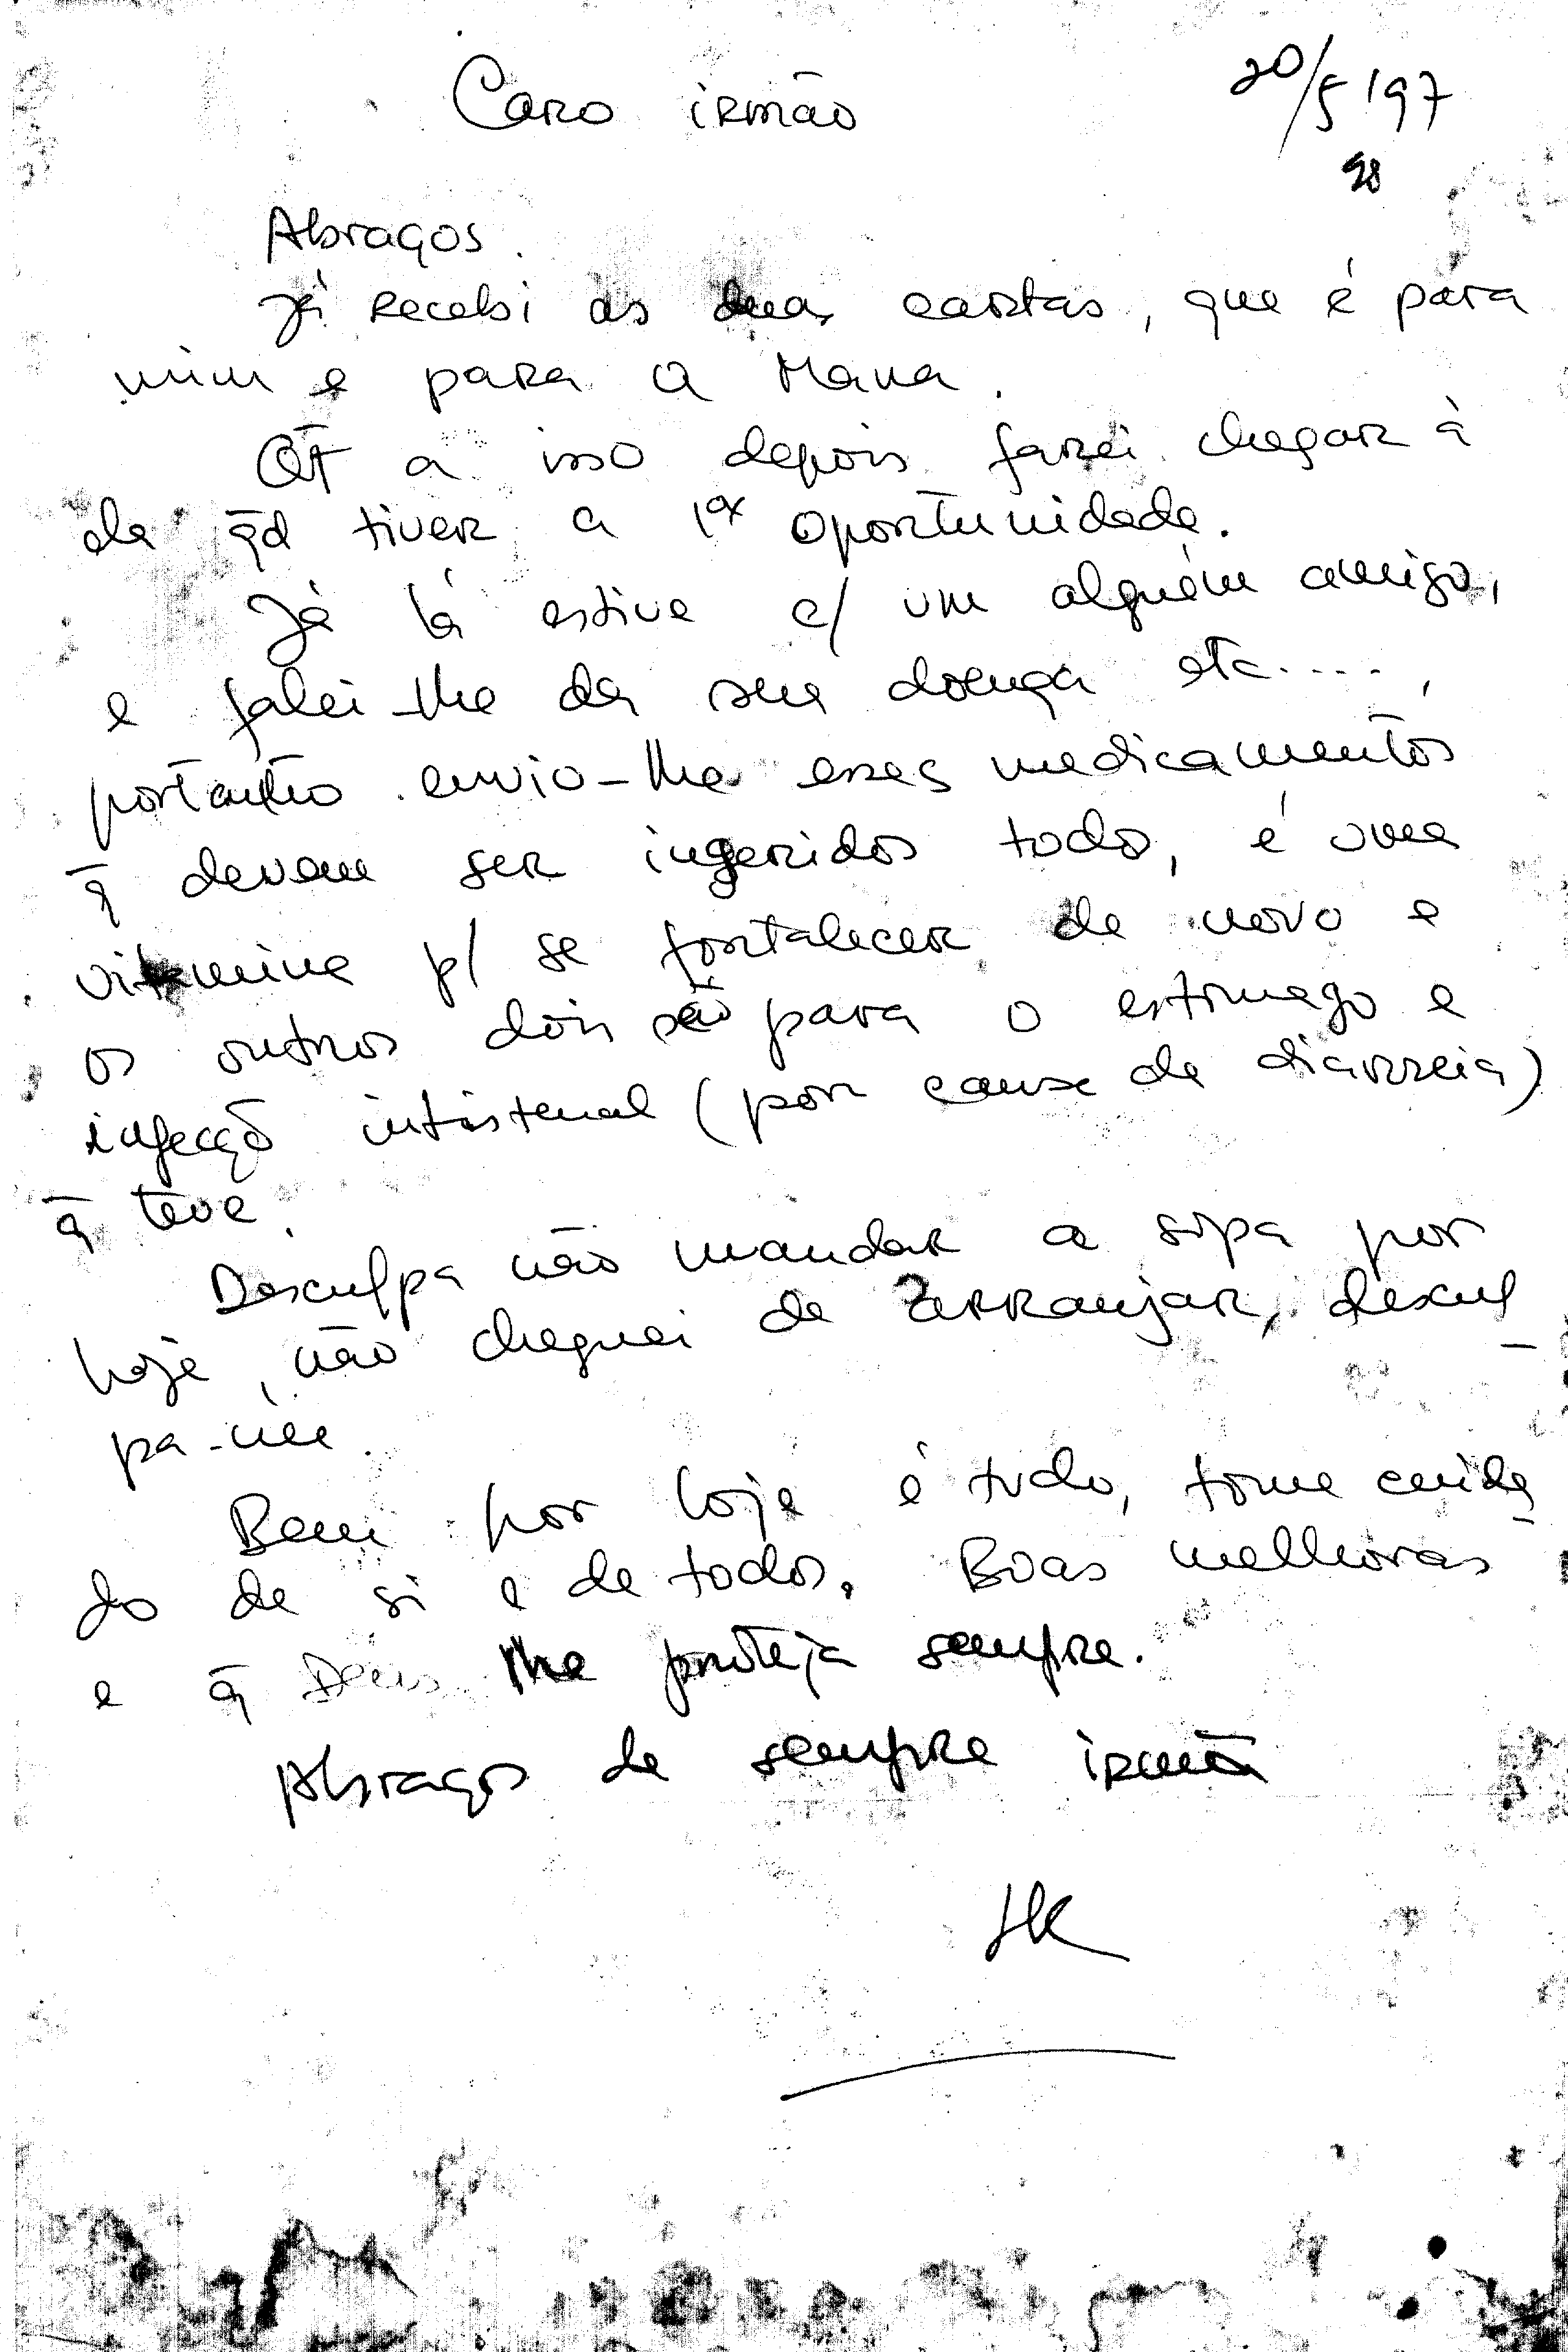 20/5/97
98
Caro irmão
Abraços.
Já recebi as duas cartas, que é para
mim e para a Mana.
Qt̄ a isso depois farei chegar à
ela q̄d tiver a 1ª oportunidade.
Já lá estive c/ um alguém amigo,
e falei-lhe da sua doença etc....,
portanto envio-lhe esses medicamentos
q̄ devem ser ingeridos todos, é uma
vitamina p/ se fortalecer de novo e
os outros dois são para o estomago e
infecçõ intistenal (por causa da diarreia)
q̄ teve.
Desculpa não mandar a sopa por
hoje, não cheguei de arranjar, descul_
pa-me.
Bem por hoje é tudo, tome cuida_
do de si e de todos. Boas melhoras
e q̄ Deus lhe proteja sempre.
Abraços de sempre irmã